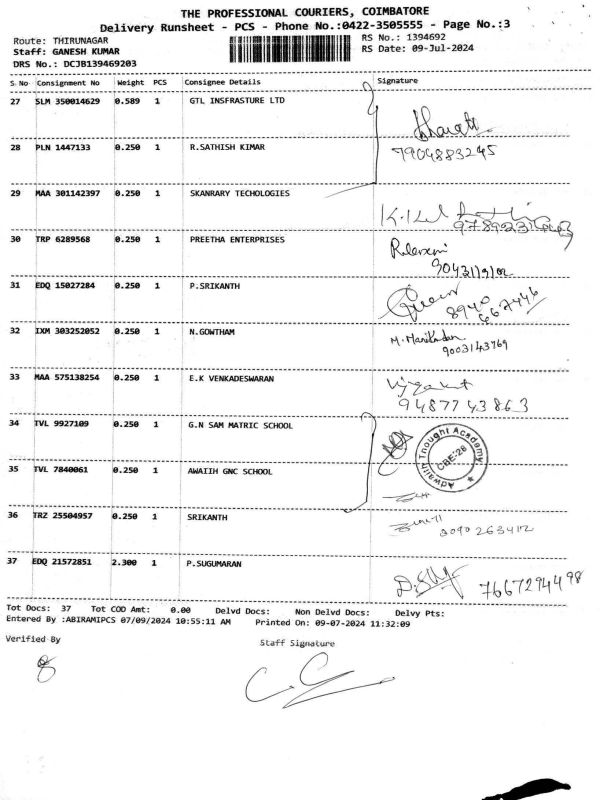 THE PROFESSIONAL COURIERS, COIMBATORE
Delivery Runsheet - PCS - Phone No.:0422-3505555 - Page No.:3
Route: THIRUNAGAR RS No.: 1394692
Staff: GANESH KUMAR RS Date: 09-Jul-2024
DRS No.: DCJB139469203
S No Consignment No Weight PCS Consignee Details Signature
27 SLM 350014629 0.589 1 GTL INSFRASTURE LTD
28 PLN 1447133 0.250 1 R.SATHISH KIMAR
7904883245
29 MAA 301142397 0.250 1 SKANRARY TECHOLOGIES
30 TRP 6289568 0.250 1 PREETHA ENTERPRISES
31 EDQ 15027284 0.250 1 P.SRIKANTH
8940
667446
32 IXM 303252052 0.250 1 N.GOWTHAM
M. Manikandan
9003143769
33 MAA 575138254 0.250 1 E.K VENKADESWARAN
9487743863
34 TVL 9927109 0.250 1 G.N SAM MATRIC SCHOOL
Adwaiith Thought Academy
CBE-28
35 TVL 7840061 0.250 1 AWAIIH GNC SCHOOL
36 TRZ 25504957 0.250 1 SRIKANTH
37 EDQ 21572851 2.300 1 P.SUGUMARAN
7667294498
Tot Docs: 37 Tot COD Amt: 0.00 Delvd Docs: Non Delvd Docs: Delvy Pts:
Entered By :ABIRAMIPCS 07/09/2024 10:55:11 AM Printed On: 09-07-2024 11:32:09
Verified By Staff Signature